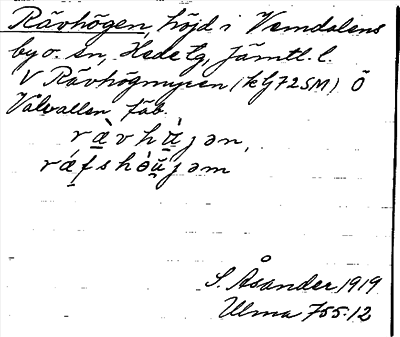 Rävhögen, höjd i Vemdalens
by o. sn, Hede tg, Jämtl. l.
V Rävhögmyren (kG725M) Ö
Vålvallen, fäb.
S. Åsander 1919
Ulma 755:12